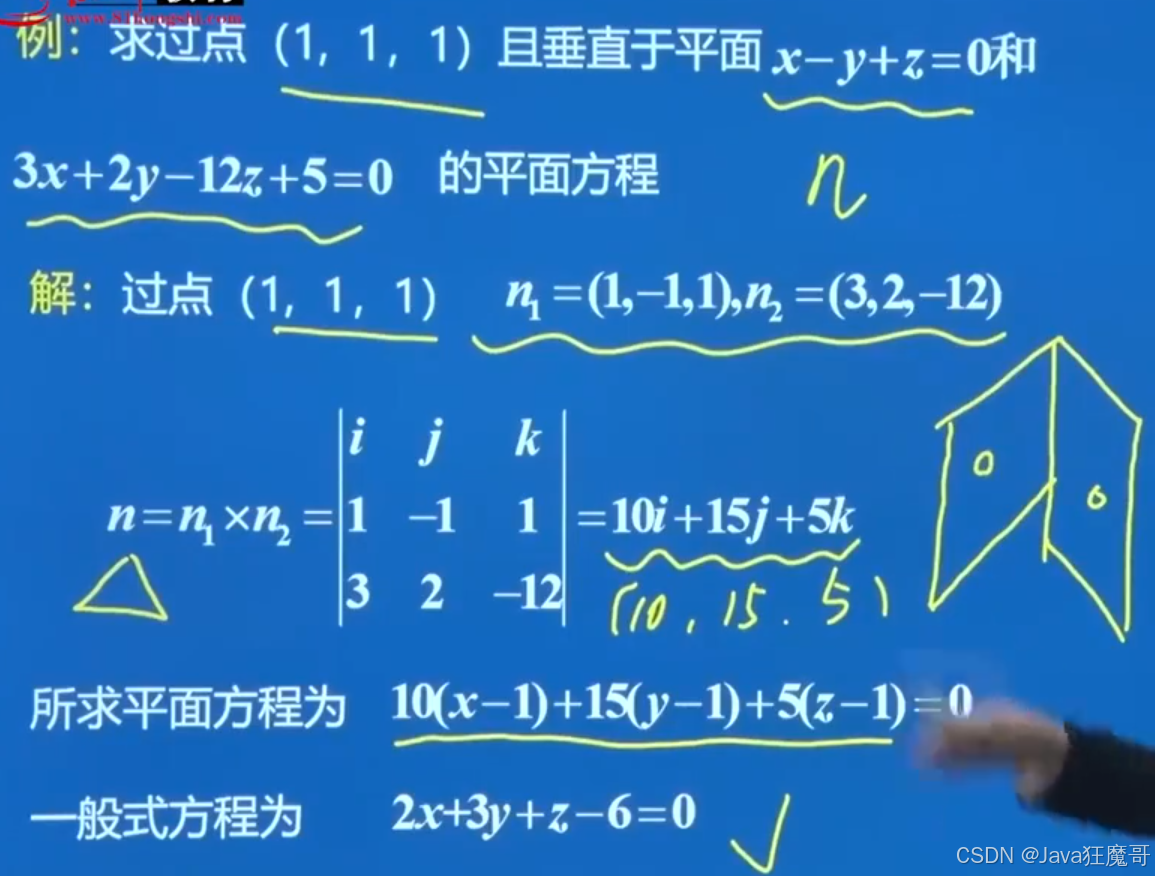 www.51kongshi.com
例：求过点（1，1，1）且垂直于平面 x−y+z=0和
3x+2y−12z+5=0 的平面方程
n
解：过点（1，1，1） n₁=(1,−1,1),n₂=(3,2,−12)
i j k
n=n₁×n₂= 1 −1 1 =10i+15j+5k
3 2 −12
(10, 15. 5)
所求平面方程为 10(x−1)+15(y−1)+5(z−1)=0
一般式方程为 2x+3y+z−6=0
CSDN @Java狂魔哥